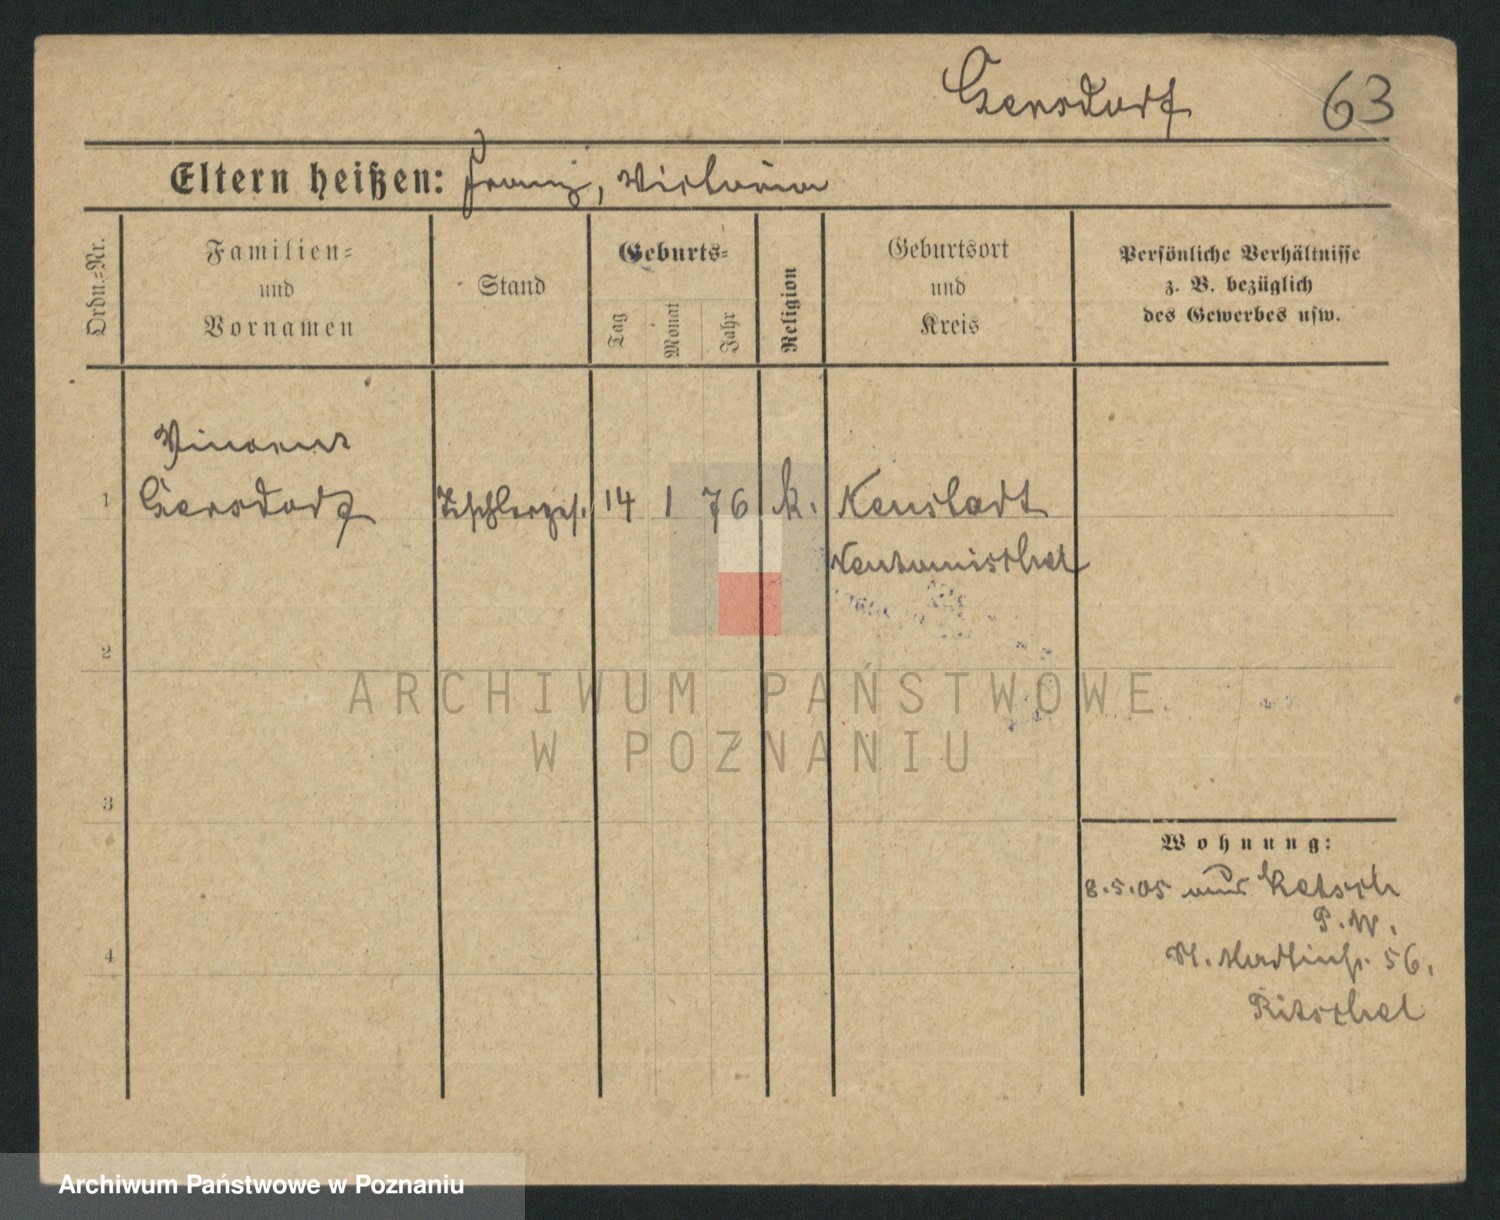 Gersdorf 63
Eltern heißen: Franz, Victoria
Ordn.=Nr.
Familien=
und
Vornamen
Stand
Geburts=
Tag
Monat
Jahr
Religion
Geburtsort
und
Kreis
Persönliche Verhältnisse
z. B. bezüglich
des Gewerbes usw.
Vincent
1 Gersdorf Tischlerges. 14 1 76 k. Neustadt
Neutomischel
2
ARCHIWUM PAŃSTWOWE
W POZNANIU
3
Wohnung:
8.5.05 aus
P.W.
4
56.
Ritschel
Archiwum Państwowe w Poznaniu